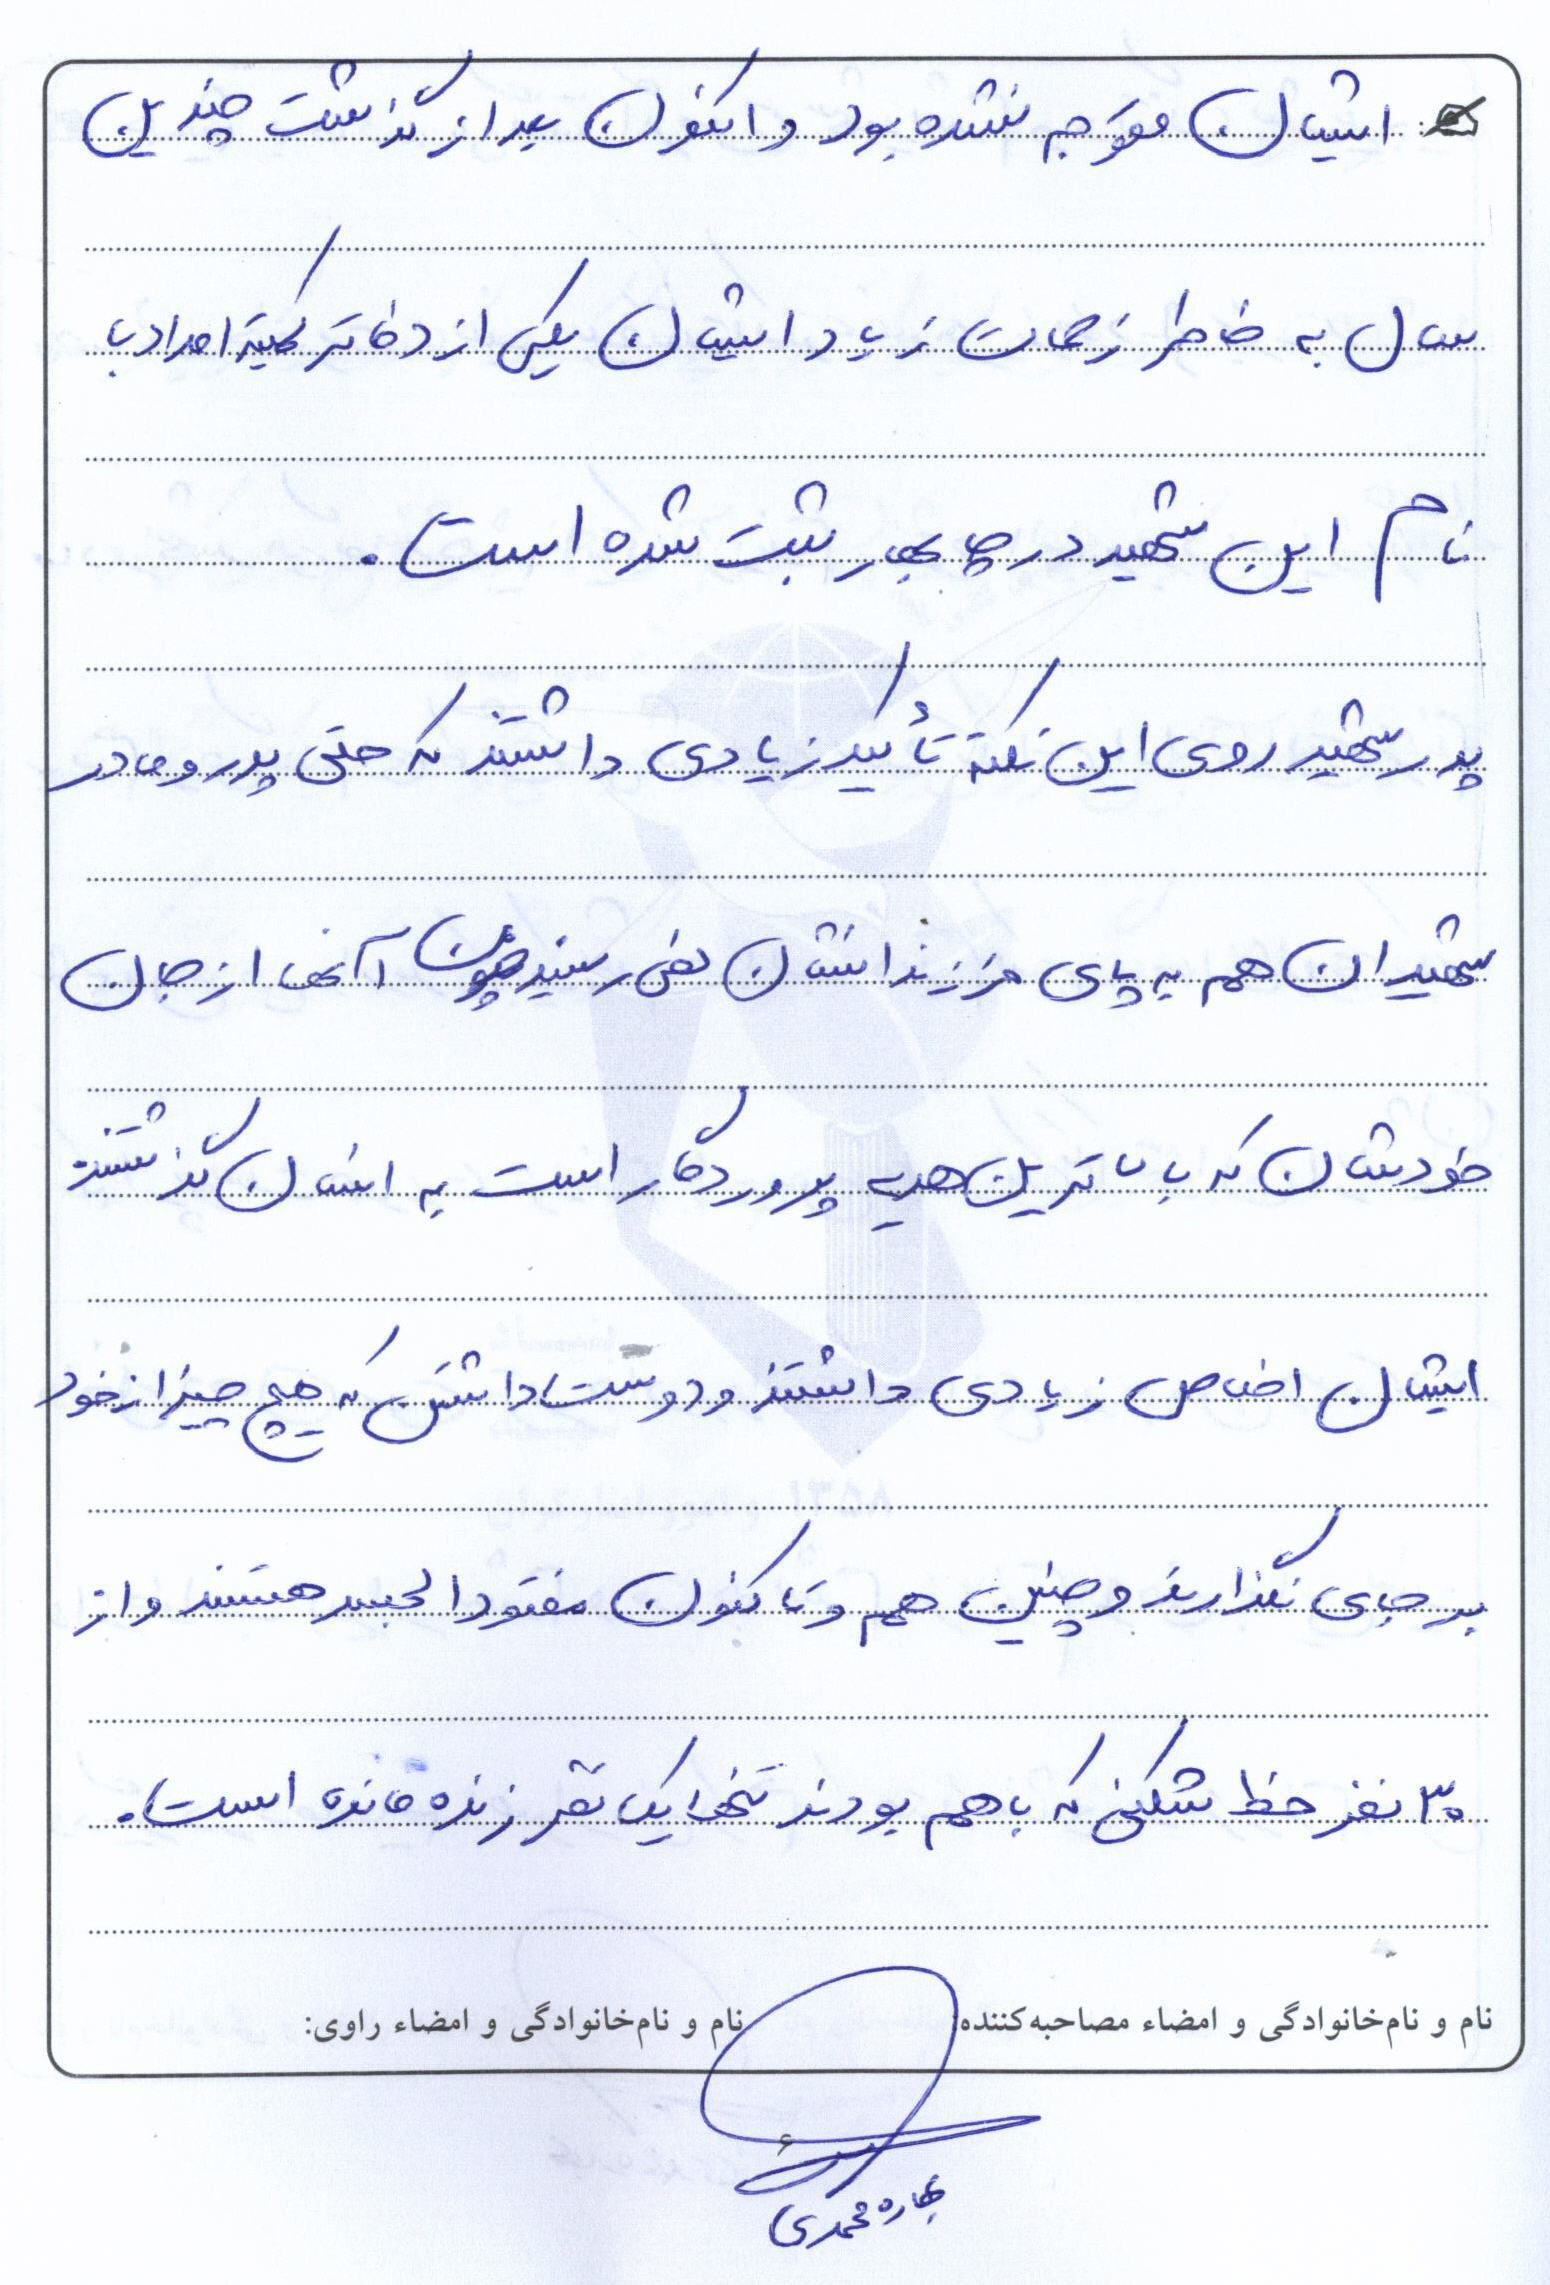 ایشان متوجه نشده بود و اکنون بعد از گذشت چندین
سال به خاطر زحمات زیاد ایشان یکی از دفاتر کمیته امداد با
نام این شهید در چابهار ثبت شده است.
پدر شهید روی این نکته تأکید زیادی داشتند که حتی پدر و مادر
شهیدان هم به پای فرزندانشان نمی‌رسند چون آنها از جان
خودشان که بالاترین هدیه پروردگار است به انسان گذشتند
ایشان اخلاص زیادی داشتند و دوست داشتند که هیچ چیز از خود
بر جای نگذارند و چنین هم و تا کنون مفقود الجسد هستند و از
۳۰ نفر خط شکنی که با هم بودند تنها یک نفر زنده مانده است.
نام و نام‌خانوادگی و امضاء مصاحبه‌کننده:
نام و نام‌خانوادگی و امضاء راوی:
۶
بهاره محمدی